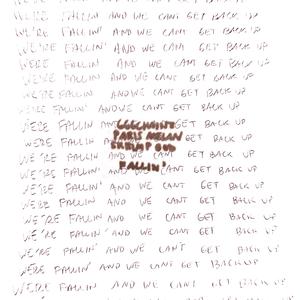 WE'RE FALLIN' AND WE CANT GET BACK UP
WE'RE FALLIN' AND WE CANT GET BACK UP
WE'RE FALLIN' AND WE CANT GET BACK UP
WE'RE FALLIN' AND WE CANT GET BACK UP
WE'RE FALLIN' AND WE CANT GET BACK UP
WE'RE FALLIN' AND WE CANT GET BACK UP
WE'RE FALLIN' AND WE CANT GET BACK UP
WE'RE FALLIN' AND WE CANT GET BACK UP
WE'RE FALLIN AND GET BACK UP
WE'RE FALLIN AN PARIS GET BACK UP
WE'RE FALLIN AND GET BACK UP
WE'RE FALLIN' AND FALLIN GET BACK UP
WE'RE FALLIN' AND WE CANT GET BACK UP
WE'RE FALLIN' AND WE CANT GET BACK UP
WE'RE FALLIN' AND WE CANT GET BACK UP
WE'RE FALLIN' AND WE CANT GET BACK UP
WE'RE FALLIN' AND WE CAN'T GET BACK UP
WE'RE FALLIN' AND WE CANT GET BACK UP
WE'RE FALLIN' AND WE CANT GET BACK UP